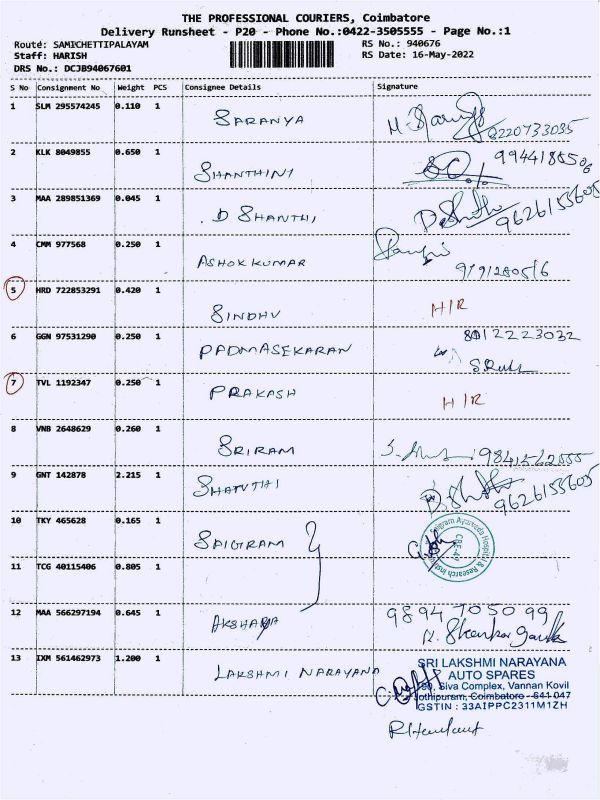 THE PROFESSIONAL COURIERS, Coimbatore
Delivery Runsheet - P20 - Phone No.:0422-3505555 - Page No.:1
Route: SAMICHETTIPALAYAM RS No.: 940676
Staff: HARISH RS Date: 16-May-2022
DRS No.: DCJB94067601
S No Consignment No Weight PCS Consignee Details Signature
1 SLM 295574245 0.110 1 SARANYA 8220733035
2 KLK 8049855 0.650 1 SHANTHINI
3 MAA 289851369 0.045 1 D SHANTHI 9626155605
4 CMM 977568 0.250 1 ASHOK KUMAR
5 HRD 722853291 0.420 1 SINDHU H/R
6 GGN 97531290 0.250 1 PADMASEKARAN 8012223032
7 TVL 1192347 0.250 1 PRAKASH H/R
8 VNB 2648629 0.260 1 SRIRAM 9841562555
9 GNT 142878 2.215 1 9626155605
10 TKY 465628 0.165 1 SAIGRAM
11 TCG 40115406 0.805 1
12 MAA 566297194 0.645 1 AKSHARA 9894705099
13 IXM 561462973 1.200 1 LAKSHMI NARAYANA
SRI LAKSHMI NARAYANA
AUTO SPARES
Siva Complex, Vannan Kovil
Jothipuram, Coimbatore - 641 047
GSTIN : 33AIPPC2311M1ZH